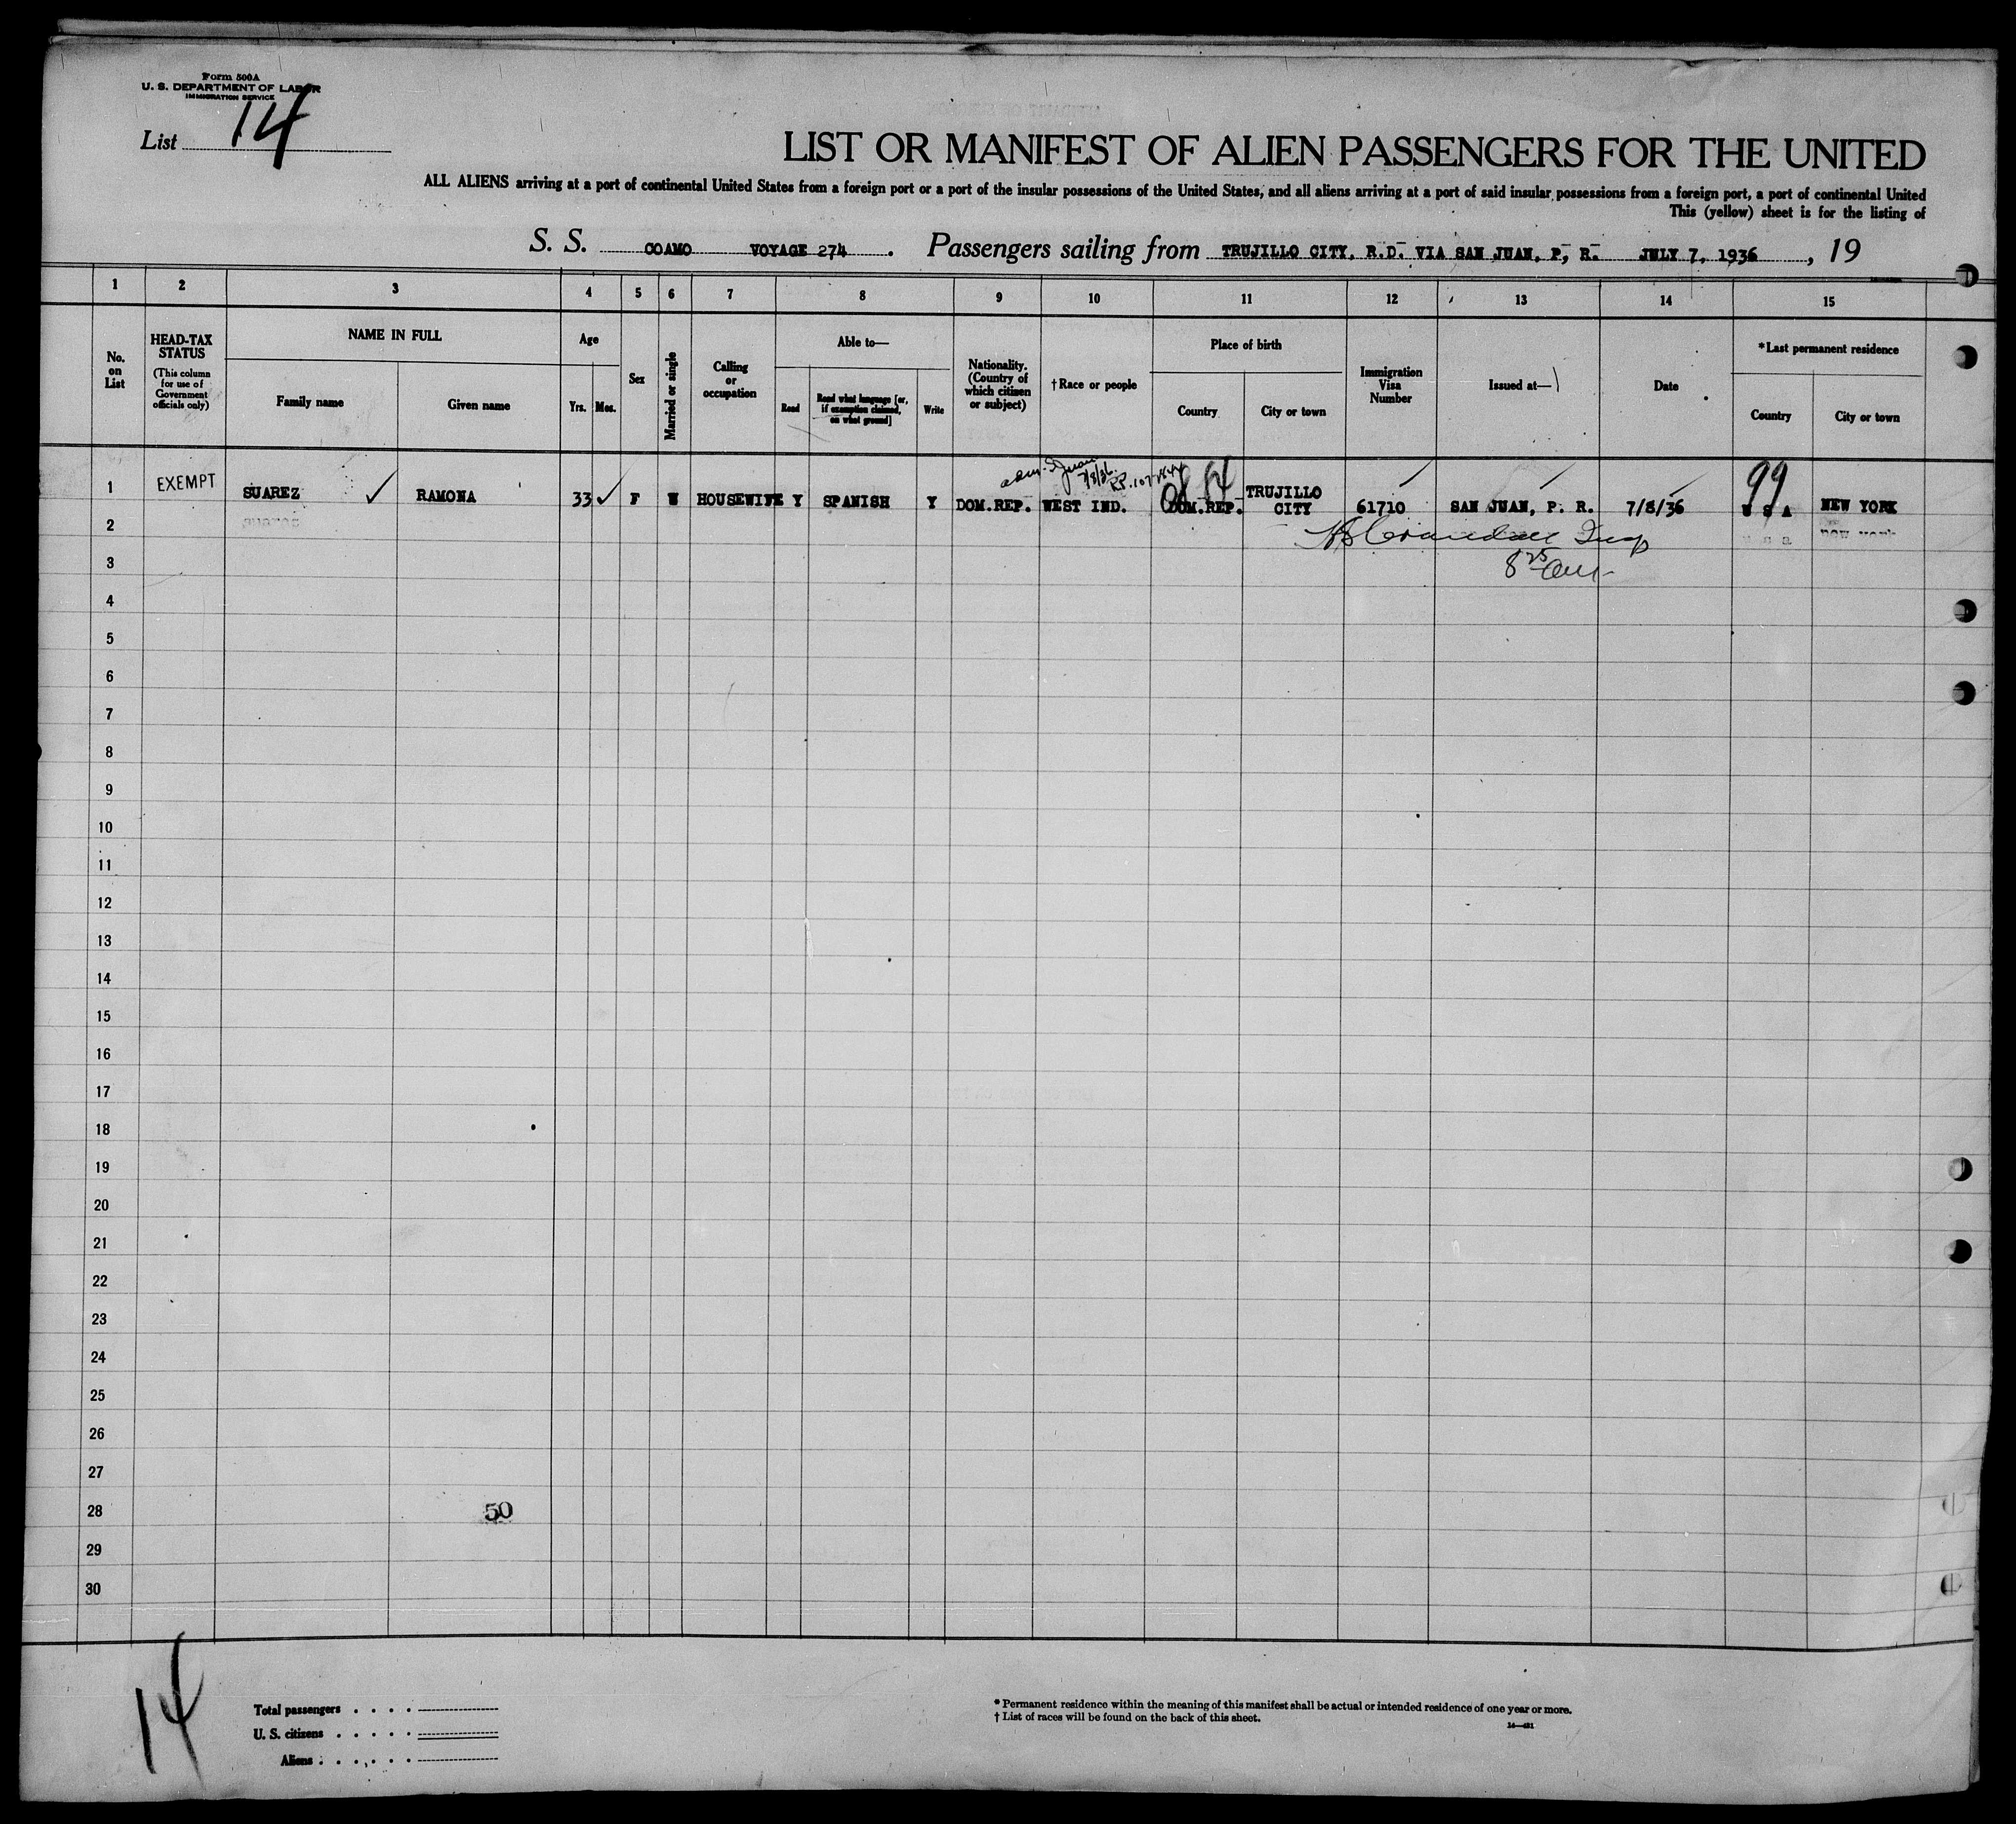 Form 500A
U. S. DEPARTMENT OF LABOR
IMMIGRATION SERVICE
List 14
LIST OR MANIFEST OF ALIEN PASSENGERS FOR THE UNITED
ALL ALIENS arriving at a port of continental United States from a foreign port or a port of the insular possessions of the United States, and all aliens arriving at a port of said insular possessions from a foreign port, a port of continental United
This (yellow) sheet is for the listing of
S. S. COAMO VOYAGE 274 . Passengers sailing from TRUJILLO CITY, R.D. VIA SAN JUAN, P, R. JULY 7, 1936 , 19
1 2 3 4 5 6 7 8 9 10 11 12 13 14 15
No. on List
HEAD-TAX STATUS
(This column for use of Government officials only)
NAME IN FULL
Family name
Given name
Age
Yrs. Mos.
Sex
Married or single
Calling or occupation
Able to—
Read
Read what language [or, if exemption claimed, on what ground]
Write
Nationality. (Country of which citizen or subject)
†Race or people
Place of birth
Country
City or town
Immigration Visa Number
Issued at—
Date
*Last permanent residence
Country
City or town
7/8/36
99
1 EXEMPT SUAREZ ✓ RAMONA 33 ✓ F W HOUSEWIFE Y SPANISH Y DOM.REP. WEST IND. DOM.REP. TRUJILLO CITY 61710 SAN JUAN, P. R. 7/8/36 U S A NEW YORK
2
3
4
5
6
7
8
9
10
11
12
13
14
15
16
17
18
19
20
21
22
23
24
25
26
27
28 50
29
30
14
Total passengers . . . .
U. S. citizens . . . . .
Aliens . . . . . .
* Permanent residence within the meaning of this manifest shall be actual or intended residence of one year or more.
† List of races will be found on the back of this sheet.